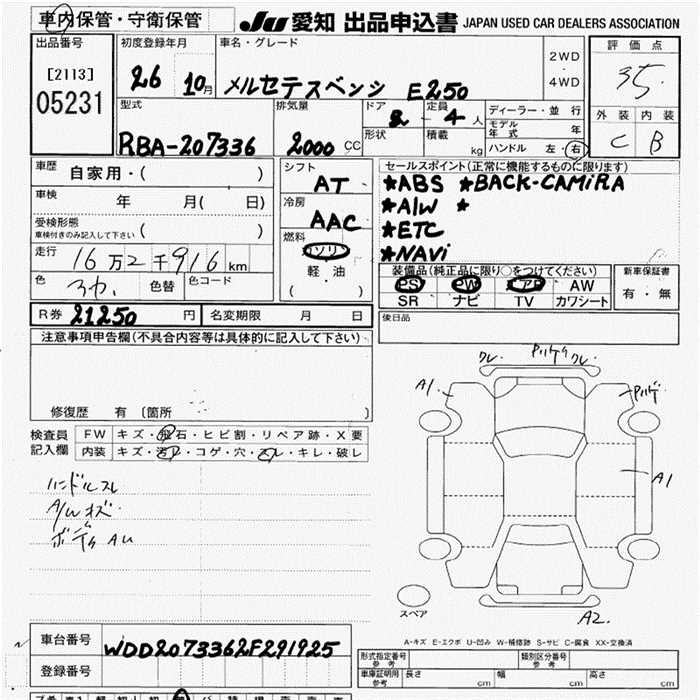 車内保管・守衛保管
JU 愛知 出品申込書 JAPAN USED CAR DEALERS ASSOCIATION
出品番号
[2113]
05231
初度登録年月
26 10月
車名・グレード
メルセデスベンシ E250
2WD
・
4WD
評価点
35
型式
RBA-207336
排気量
2000 CC
ドア 2
定員 4 人
形状
積載 kg
ディーラー・並行
モデル年式 年
ハンドル 左・右
外装 内装
C B
車歴 自家用・( )
車検 年 月( 日)
受検形態
車検付きのみ記入して下さい ( )
走行 16万2千916km
色
色替
色コード
シフト
AT
冷房
AAC
燃料
ガソリン
軽・油
( )
セールスポイント(正常に機能するものに限ります)
★ABS ★BACK-CAMiRA
★A/W ★
★ETC
★NAVi
装備品(純正品に限り○をつけてください)
PS PW エアB AW
SR ナビ TV カワシート
新車保証書
有・無
R券 21250 円
名変期限 月 日
後日品
注意事項申告欄(不具合内容等は具体的に記入して下さい)
修復歴 有 〔箇所 〕
検査員
記入欄
FW キズ・飛石・ヒビ割・リペア跡・X要
内装 キズ・汚レ・コゲ・穴・スレ・キレ・破レ
ハンドルスレ
A/Wキズ
A1
A1
A2
スペア
A-キズ E-エクボ U-凹み W-補修跡 S-サビ C-腐食 XX-交換済
車台番号 WDD2073362F291925
登録番号
形式指定番号
参考
類別区分番号
参考
車庫証明用
参考
長さ cm 幅 cm 高さ cm